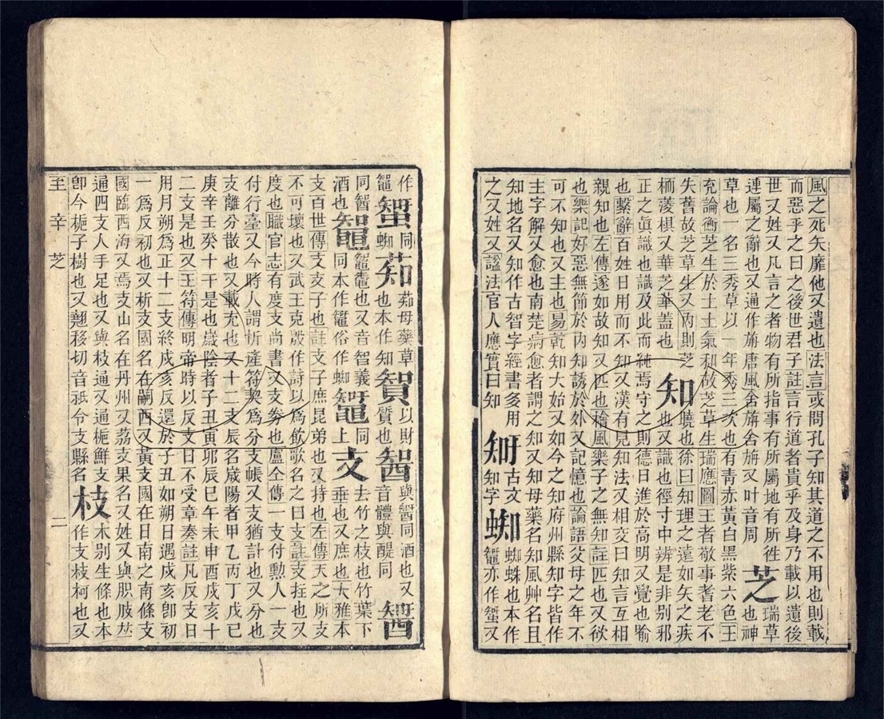 風之死矢靡他又遺也法言或問孔子知其道之不用也則載
而惡乎之曰之後世君子註言行道者貴乎及身乃載以遺後
世又姓又凡言之者物有所指事有所屬地有所往芝瑞草也神
連屬之辭也又通作旃唐風舍旃舍旃又叶音周
草也一名三秀草以一年秀三次也有青赤黃白黑紫六色王
充論衡芝生於土土氣和故芝草生瑞應圖王者敬事耆老不
失舊故芝草生又內則芝栭蓤椇又華芝華蓋也知曉也徐曰知理之速如矢之疾也又識也徑寸中辨是非別邪
正之眞識也識及此而純焉守之則德日進於高明又覺也喻
也繫辭百姓日用而不知又漢有見知法又相交曰知言互相
親知也左傳遂如故知又匹也檜風樂子之無知註匹也又欲
也樂記好惡無節於內知誘於外又記憶也論語父母之年不
可不知也又主也易乾知大始又如今之知府州縣知字皆作
主字解又愈也南楚病愈者謂之知又知母藥名知風艸名且
知地名又知作古智字經書多用𥎿古文知字蜘蜘蛛也本作鼅亦作䵹又
之又姓又諡法官人應實曰知
作鼅䵹同蜘䓡䓡母藥草也本作知𧵳以財質也
同酒也
支百世傳支支子也註支子庶昆弟也又持也左傳天之所支
不可壞也又武王克殷作詩以爲飫歌名之曰支註支拄也又
度支也職官志有度支尚書又支劵也盧仝傳一支付勲人一支
付行臺又今時人謂析產符契爲分支帳又支猶計也又分也
支離分散也又載充也又十二支辰名歲陽者甲乙丙丁戊己
庚辛壬癸十干是也歲陰者子丑寅卯辰巳午未申酉戌亥十
二支是也又王符傳明帝時以反支日不受章奏註凡反支日
用月朔爲正十二支終戌亥反還於子丑如朔日遇戌亥卽初
一爲反初也又析支國名在蘭西又黃支國在日南之南條支
國臨西海又焉支山名在丹州又荔支果名又姓又與胑肢𠀤
通四支人手足也又與枝通又通梔鮮支
卽今梔子樹也又翹移切音祇令支縣名枝木別生條也本作支枝柯也又
至辛芝
二